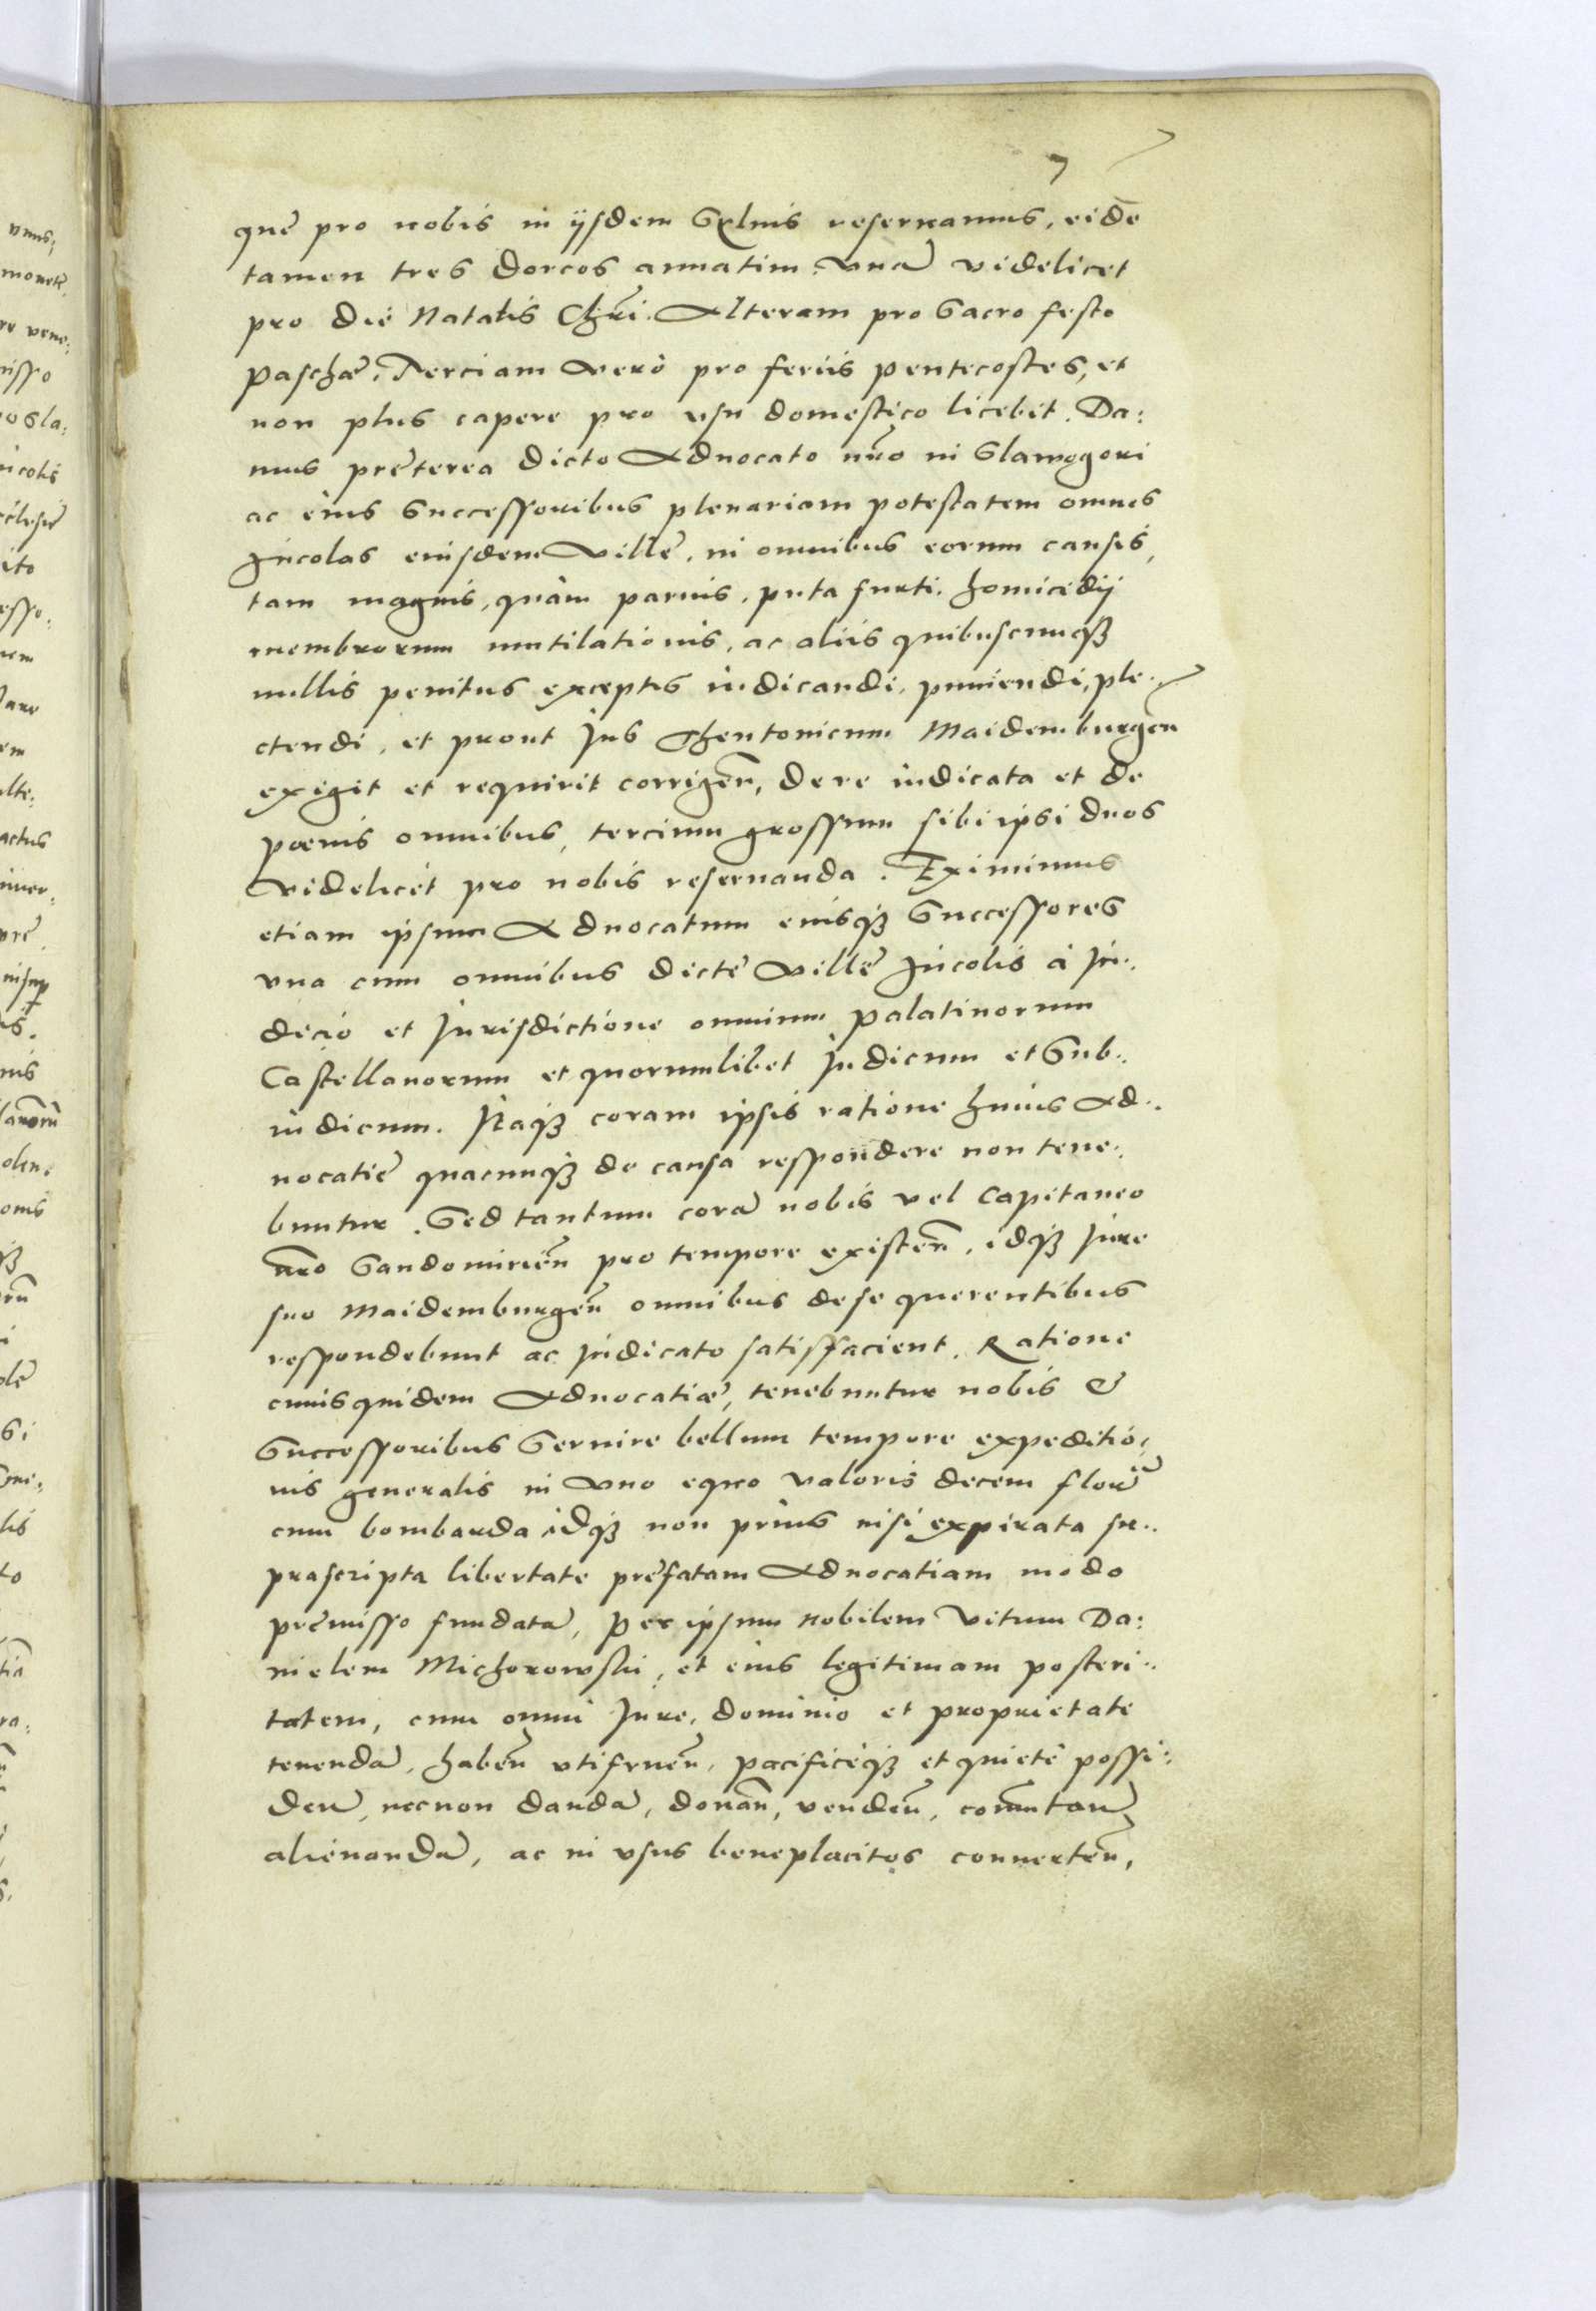 7
quę pro nobis in ijsdem Sẏluis reseruamus, eidē
tamen tres dorcos annatim, vnā videlicet
pro die Natalis Chr̄i. Alteram pro Sacro festo
Paschæ. Terciam verò pro feriis Pentecostes, et
non plus capere pro vsu domestico licebit. Da:
mus pręterea dicto Aduocato nr̄o in Slawogori
ac eius Successoribus plenariam potestatem omnes
Incolas eiusdem Villę, in omnibus eorum causis,
tam magnis, quàm paruis, puta furti, homicidij
membrorum mutilationis, ac aliis quibuscunq3
nullis penitus exceptis iudicandi, puniendi, ple-
ctendi, et prout Jus Theutonicum Maidemburgen̄
exigit et requirit corrigen̄, de re iudicata et de
pœnis omnibus, tercium grossum sibi ipsi duos
videlicet pro nobis reseruanda. Eximimus
etiam ipsum Aduocatum eiusq3 Successores
vna cum omnibus dictę Villę Incolis à Ju-
dicio et Jurisdictione omnium Palatinorum
Castellanorum et quorumlibet Judicum et Sub-
iudicum. Itaq3 coram ipsis ratione huius Ad-
uocatię quacunq3 de causa respondere non tene-
buntur. Sed tantum corā nobis vel Capitaneo
nr̄o Sandomirien̄ pro tempore existen̄, idq3 Jure
suo Maidemburgen̄ omnibus de se querentibus
respondebunt ac Judicato satisfacient. Ratione
cuius quidem Aduocatiæ, tenebuntur nobis &
Successoribus Seruire bellum tempore expeditio-
nis generalis in vno equo valoris decem flor̄
cum bombarda idq3 non prius nisi expirata su-
prascripta libertate pręfatam Aduocatiam modo
pręmisso fundatā, Per ipsum Nobilem Vitum Da:
nielem Michorowski, et eius legitimam posteri-
tatem, cum omni Jure, dominio et proprietate
tenendā, haben̄ vtifruen̄, pacificèq3 et quietè possi-
den̄, necnon dandā, donan̄, venden̄, com̄utan̄
alienandā, ac in vsus beneplacitos conuerten̄,